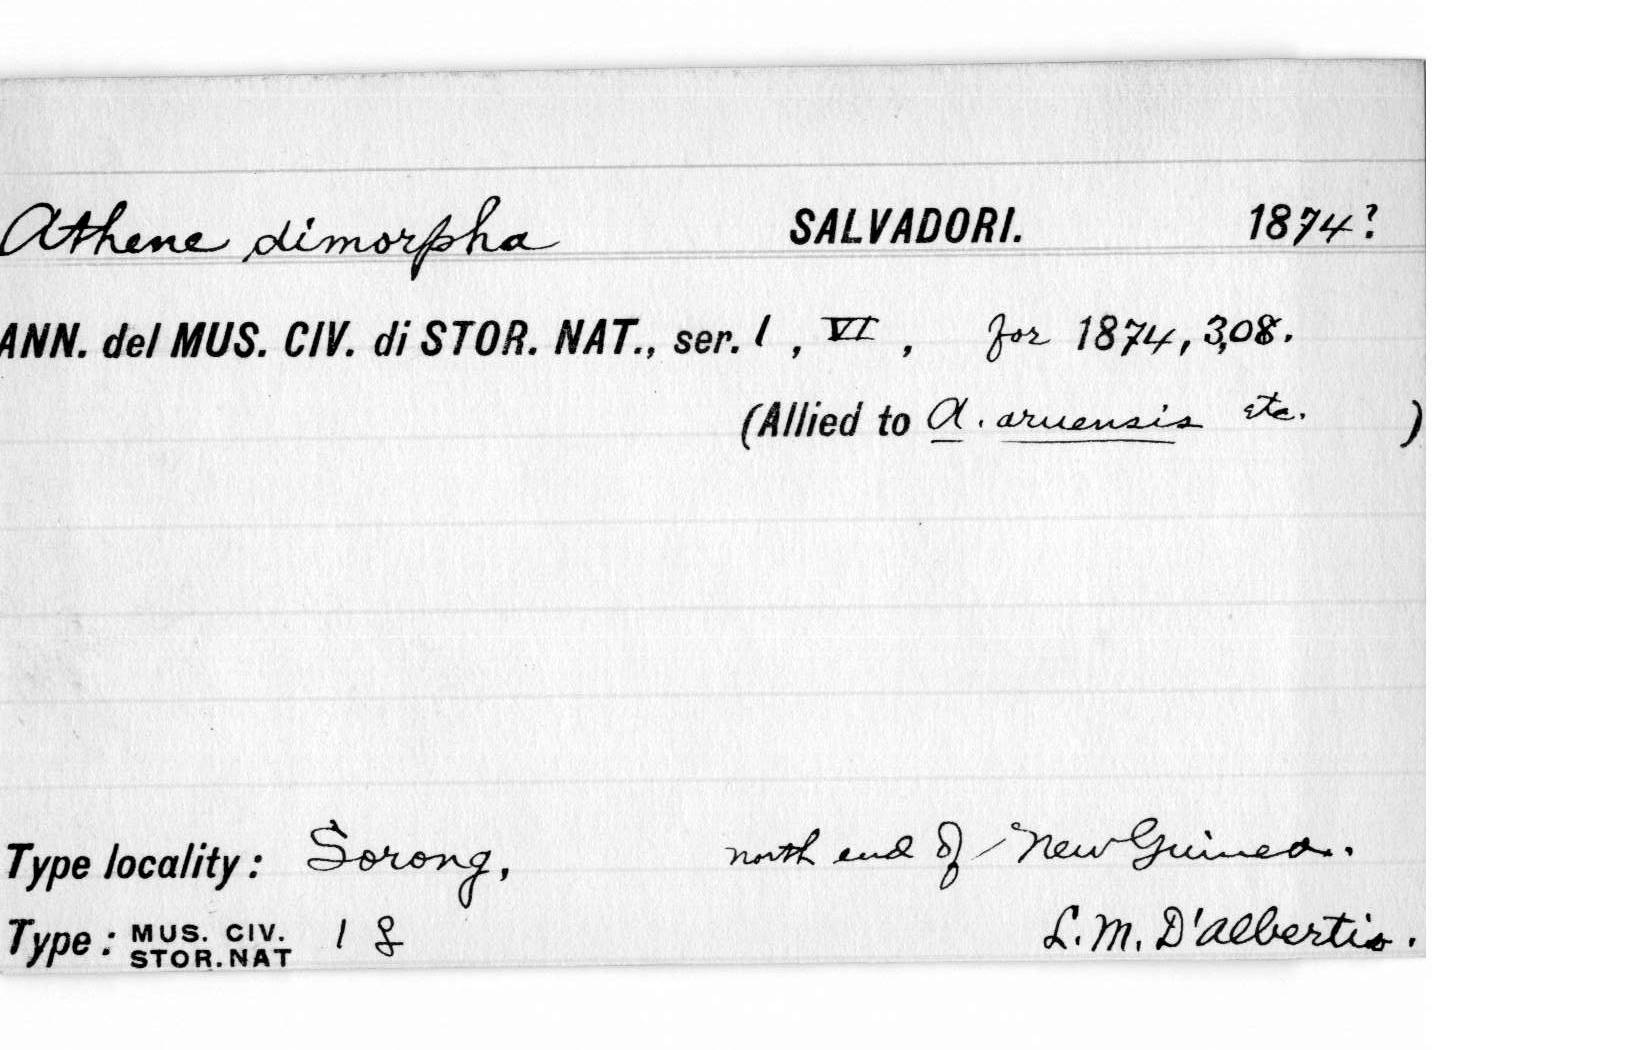 Athene dimorpha SALVADORI. 1874?
ANN. del MUS. CIV. di STOR. NAT., ser. 1, VI, for 1874, 308.
(Allied to A. aruensis etc. )
Type locality: Sorong, north end of New Guinea.
Type: MUS. CIV. STOR. NAT 1 ♀ L. M. D'Albertis.